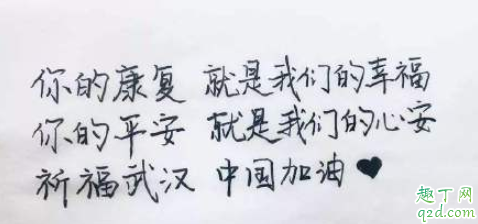 你的康复 就是我们的幸福
你的平安 就是我们的心安
祈福武汉 中国加油♥
趣丁网
q2d.com